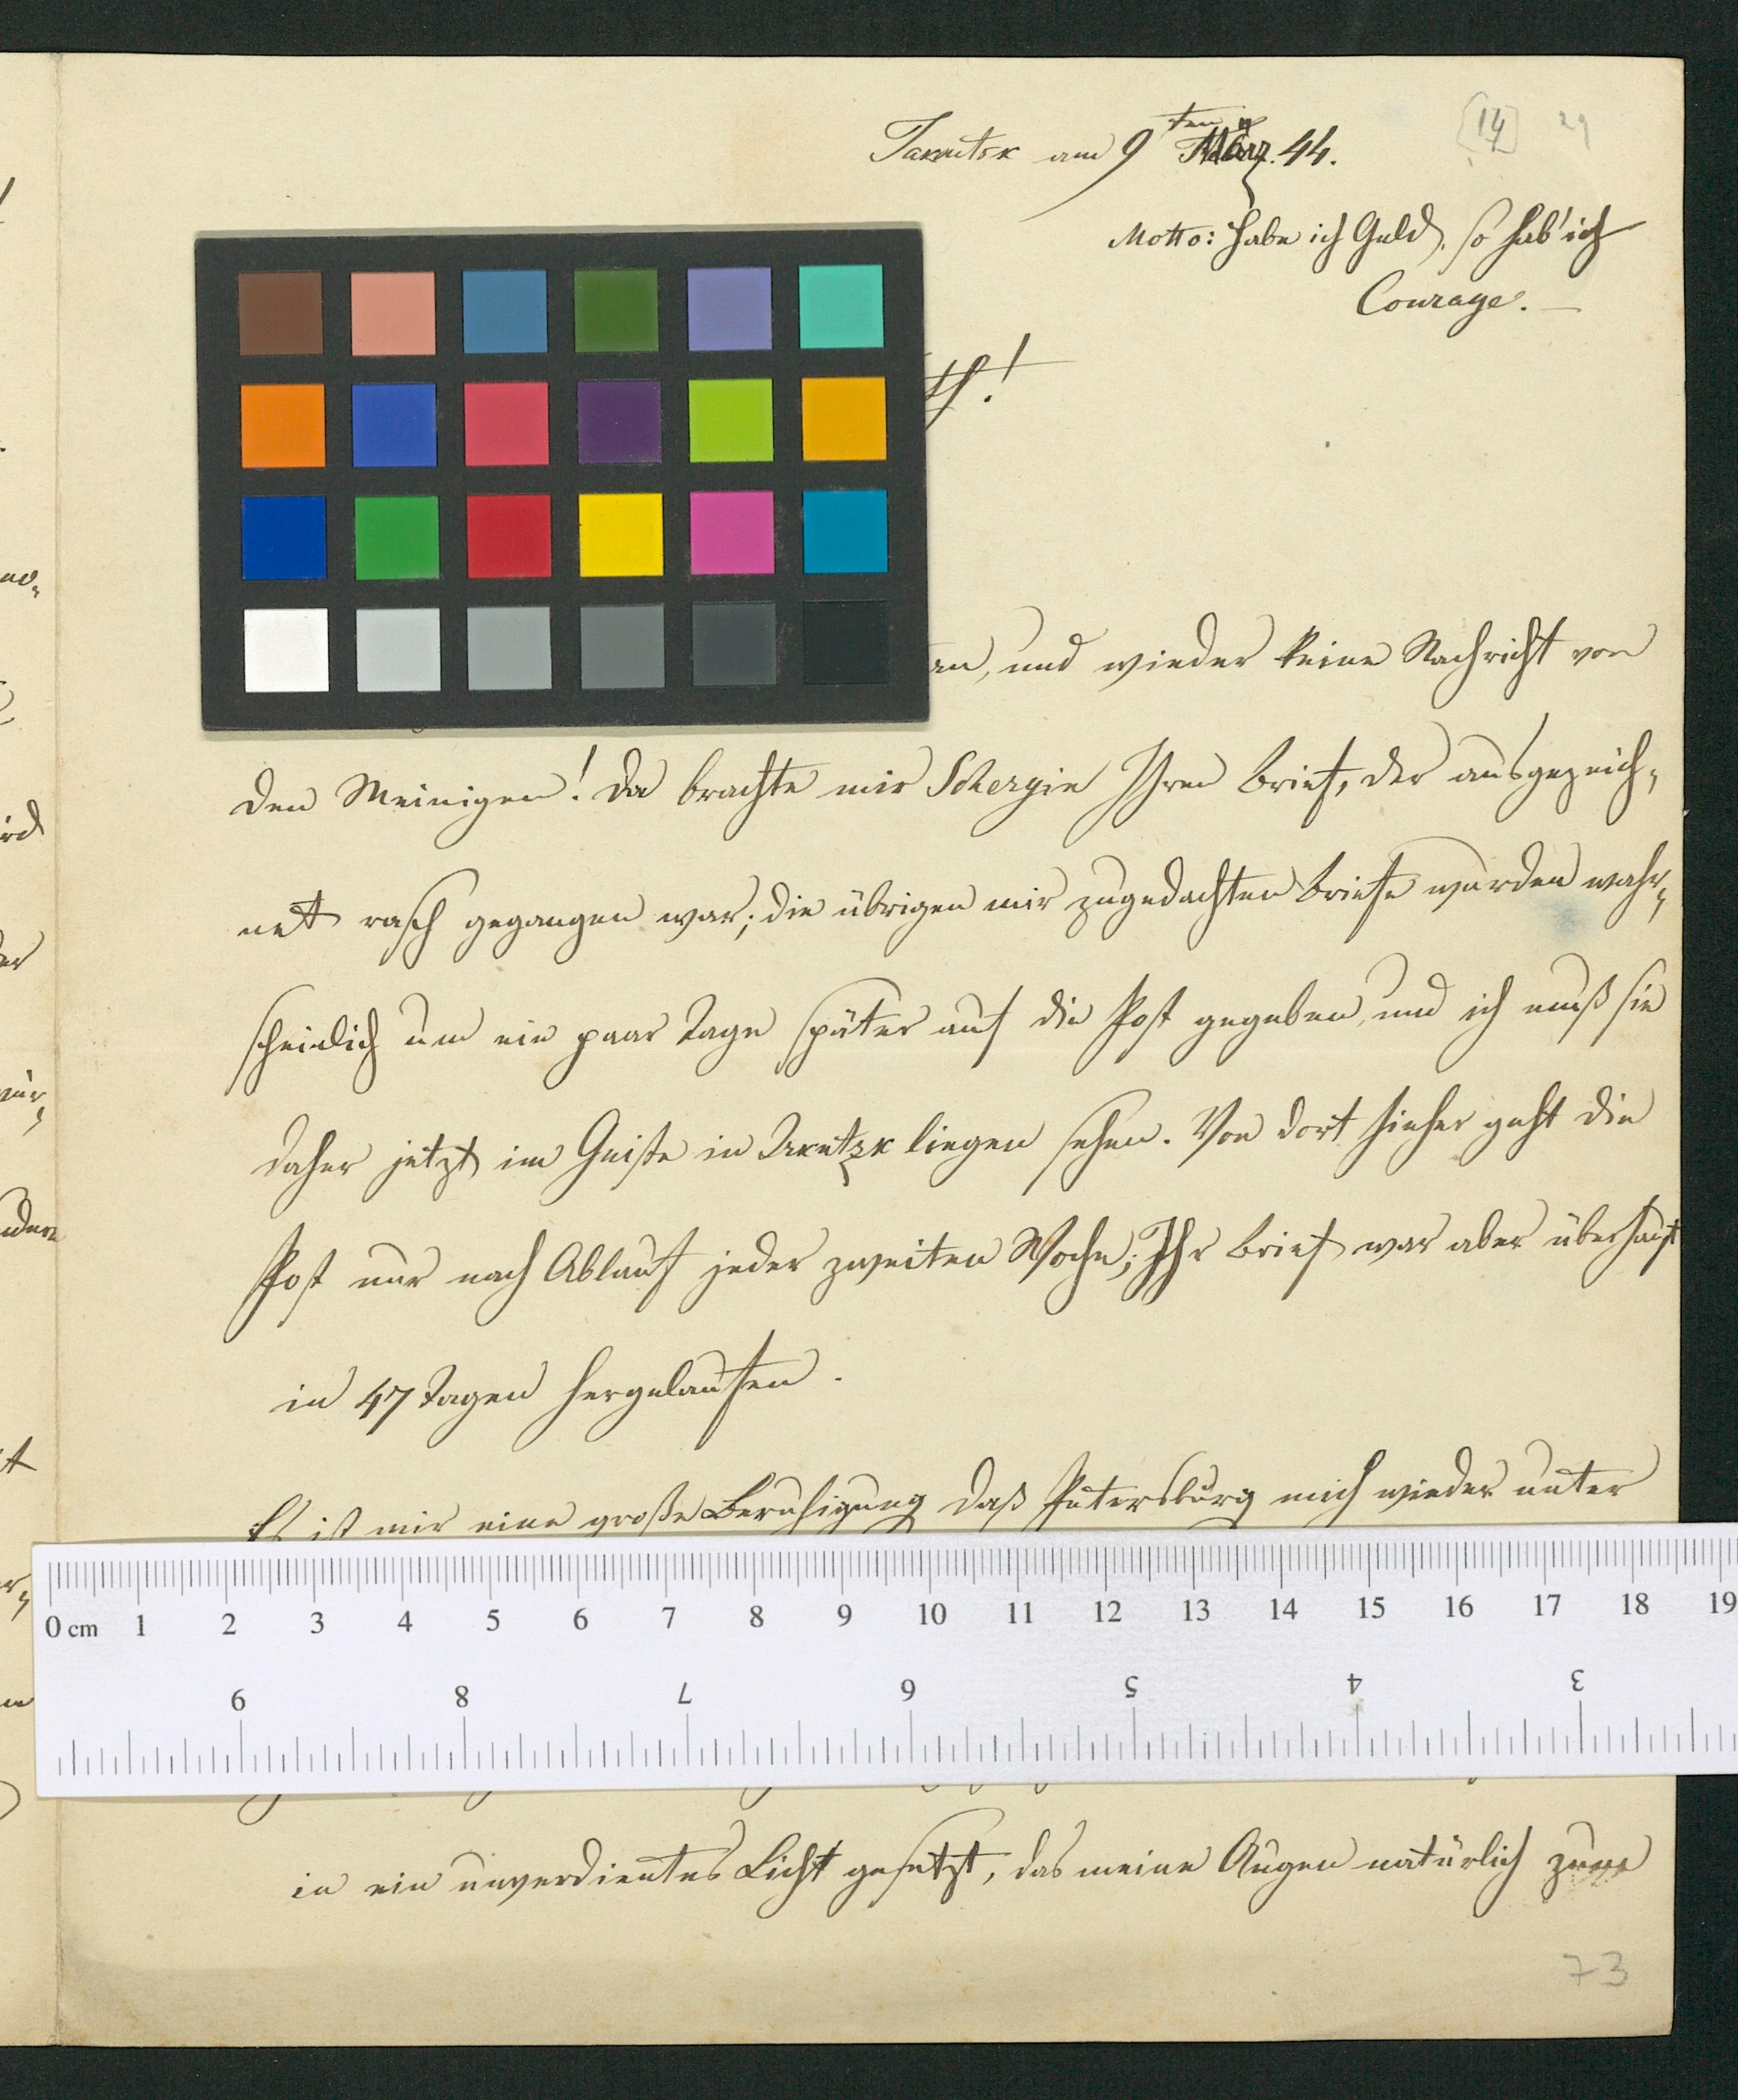 Jakutsk am 9ten März. 44.
[14] 29
Motto: Habe ich Geld, so hab' ich
Courage. —
th!
en, und wieder keine Nachricht von
den Meinigen! Da brachte mir Schergin Ihren Brief, der ausgezeich-
net rasch gegangen war; die übrigen mir zugedachten Briefe wurden wahr-
scheinlich um ein paar Tage später auf die Post gegeben, und ich muß sie
daher jetzt im Geiste in Irkutzk liegen sehen. Von dort hieher geht die
Post nur nach Ablauf jeder zweiten Woche; Ihr Brief war aber überhaupt
in 47 Tagen hergelaufen.
Es ist mir eine große Beruhigung daß Petersburg mich wieder unter
0 cm 1 2 3 4 5 6 7 8 9 10 11 12 13 14 15 16 17 18 19
9 8 7 6 5 4 3
in ein unverdientes Licht gesetzt, das meine Augen natürlich zum
73